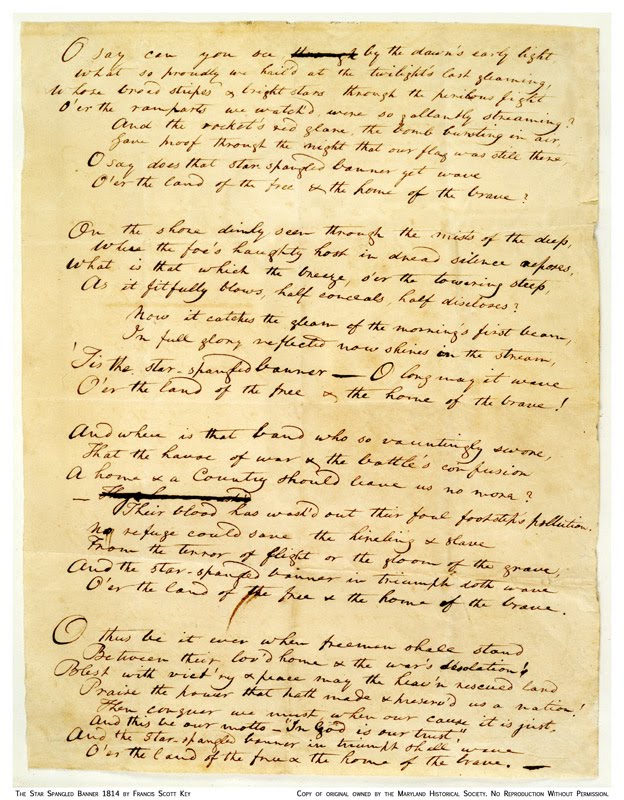 O say can you see through by the dawn's early light,
What so proudly we hail'd at the twilight's last gleaming,
Whose broad stripes & bright stars through the perilous fight
O'er the ramparts we watch'd, were so gallantly streaming?
And the rocket's red glare, the bomb bursting in air,
Gave proof through the night that our flag was still there,
O say does that star-spangled banner yet wave
O'er the land of the free & the home of the brave?
On the shore dimly seen through the mists of the deep,
Where the foe's haughty host in dread silence reposes,
What is that which the breeze, o'er the towering steep,
As it fitfully blows, half conceals, half discloses?
Now it catches the gleam of the morning's first beam,
In full glory reflected now shines in the stream,
'Tis the star-spangled banner — O long may it wave
O'er the land of the free & the home of the brave!
And where is that band who so vauntingly swore,
That the havoc of war & the battle's confusion
A home & a Country should leave us no more?
—
Their blood has wash'd out their foul footstep's pollution.
No refuge could save the hireling & slave
From the terror of flight or the gloom of the grave,
And the star-spangled banner in triumph doth wave
O'er the land of the free & the home of the brave.
O thus be it ever when freemen shall stand
Between their lov'd home & the war's desolation!
Blest with vict'ry & peace may the heav'n rescued land
Praise the power that hath made & preserv'd us a nation!
Then conquer we must, when our cause it is just,
And this be our motto — "In God is our trust,"
And the star-spangled banner in triumph shall wave
O'er the land of the free & the home of the brave. —
The Star Spangled Banner 1814 by Francis Scott Key
Copy of original owned by the Maryland Historical Society. No Reproduction Without Permission.